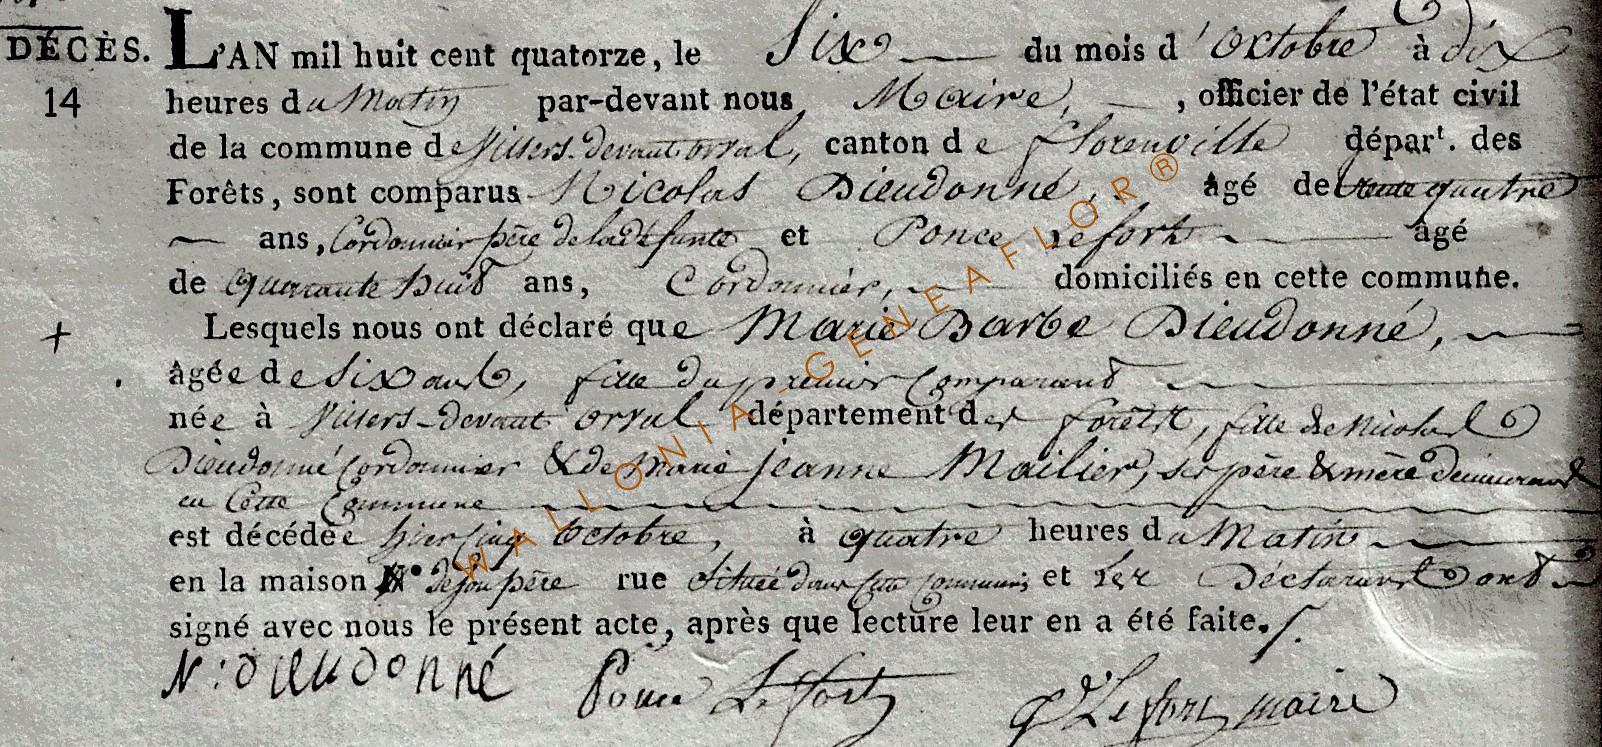 DÉCÈS. L'AN mil huit cent quatorze, le Six du mois d'Octobre à dix
14 heures du Matin par-devant nous Maire, , officier de l'état civil
de la commune de Villers-devant-orval, canton de florenville départ. des
Forêts, sont comparus Nicolas Dieudonné, âgé de trente quatre
ans, Cordonnier père de la défunte et Ponce Lefort âgé
de quarante huit ans, Cordonnier, domiciliés en cette commune.
+ Lesquels nous ont déclaré que Marie Barbe Dieudonné,
âgée de Six ans, fille du premier Comparant
née à Villers-devant orval département des forêts, fille de Nicolas
Dieudonné Cordonnier & de Marie jeanne Mailier, ses père & mère demeurant
en Cette Commune
est décédée hier cinq Octobre, à quatre heures du Matin
en la maison N° de son père rue Située dans Cette Commune, et les Déclarants ont
signé avec nous le présent acte, après que lecture leur en a été faite./.
N: Dieudonné Ponce Lefort Lefort maire
WALLONIA-GENEAFLOR®